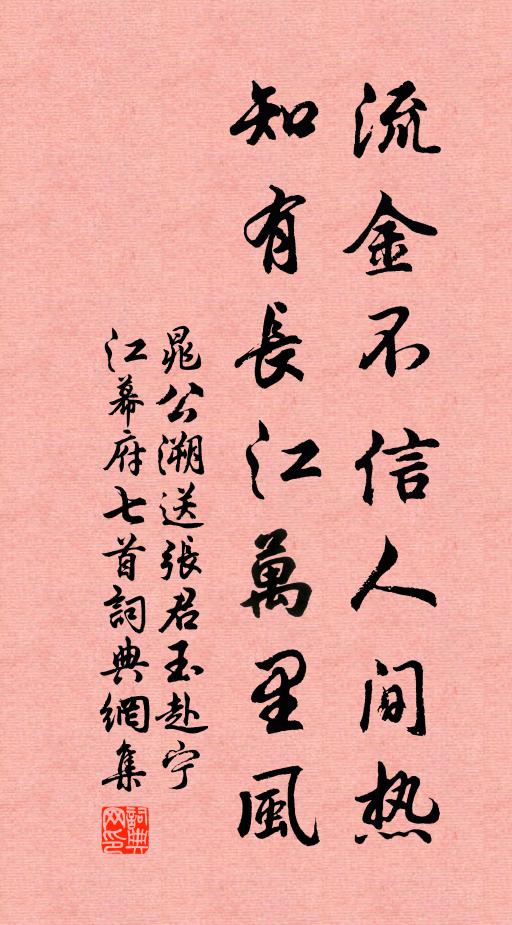 流金不信人间热
知有長江萬里風
晁公溯送張君玉赴宁
江幕府七首詞典網集
詞典网印